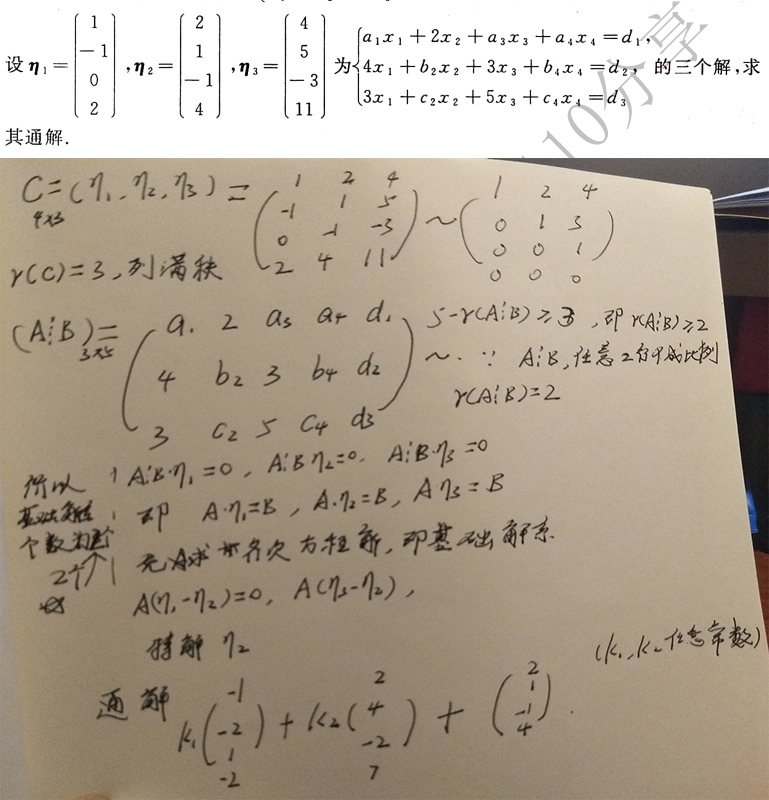 设 η₁ = (1, -1, 0, 2), η₂ = (2, 1, -1, 4), η₃ = (4, 5, -3, 11) 为 { a₁x₁+2x₂+a₃x₃+a₄x₄=d₁, 4x₁+b₂x₂+3x₃+b₄x₄=d₂, 3x₁+c₂x₂+5x₃+c₄x₄=d₃ 的三个解,求
其通解.
10分享
C = (η₁, η₂, η₃) = ( 1 2 4
-1 1 5
0 -1 -3
2 4 11 ) ~ ( 1 2 4
0 1 3
0 0 1
0 0 0 )
4×3
r(C)=3,列满秩
(A⋮B) = ( a₁ 2 a₃ a₄ d₁
4 b₂ 3 b₄ d₂
3 c₂ 5 c₄ d₃ )
3×5
5-r(A⋮B)≥3,即r(A⋮B)≥2
~ ∵ A⋮B,任意2行不成比例
r(A⋮B)=2
所以
基础解系
个数为
2个
A⋮B·η₁=0, A⋮Bη₂=0, A⋮B·η₃=0
即 A·η₁=B, A·η₂=B, Aη₃=B
先求齐次方程解,即基础解系
A(η₁-η₂)=0, A(η₃-η₂),
特解 η₂
(k₁,k₂任意常数)
通解 k₁( -1
-2
1
-2 ) + k₂( 2
4
-2
7 ) + ( 2
1
-1
4 ).